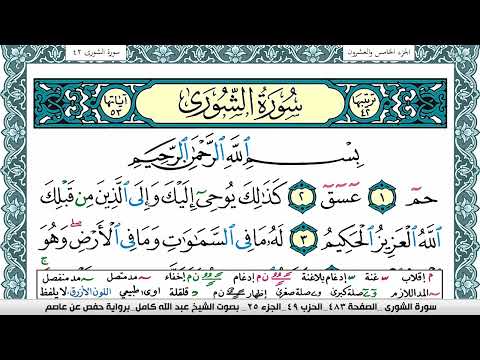 الجزء الخامس والعشرون
سورة الشورى ٤٢
ترتيبها ٤٢
سُورَةُ الشُّورَىٰ
آياتها ٥٣
بِسْمِ ٱللَّهِ ٱلرَّحْمَٰنِ ٱلرَّحِيمِ
حمٓ ١ عٓسٓقٓ ٢ كَذَٰلِكَ يُوحِىٓ إِلَيْكَ وَإِلَى ٱلَّذِينَ مِن قَبْلِكَ
ٱللَّهُ ٱلْعَزِيزُ ٱلْحَكِيمُ ٣ لَهُۥ مَا فِى ٱلسَّمَٰوَٰتِ وَمَا فِى ٱلْأَرْضِ ۖ وَهُوَ
م إقلاب غنة إدغام بلاغنة إدغام إخفاء مد متصل مد منفصل
المد اللازم صلة كبرى صلة صغرى إظهار قلقلة اوى، طبيعي اللون الأزرق لا يلفظ
سورة الشورى _الصفحة ٤٨٣ _الحزب ٤٩ _الجزء ٢٥_ بصوت الشيخ عبد الله كامل_ برواية حفص عن عاصم